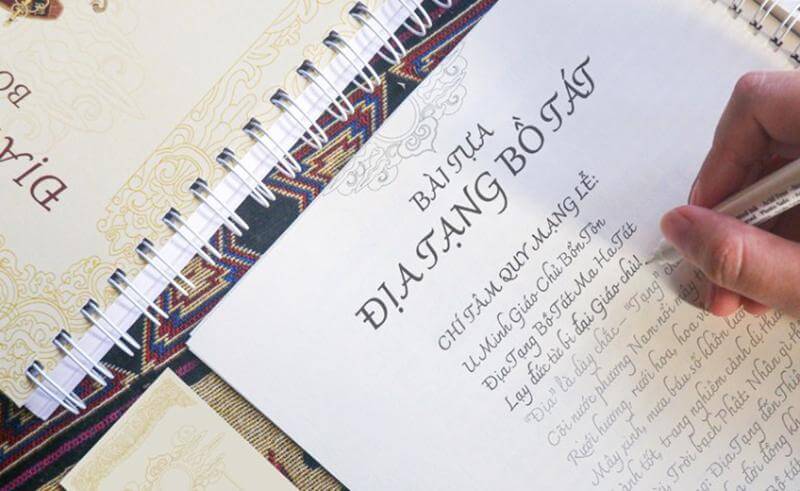 ĐỊA
BỒ
BÀI TỰA
ĐỊA TẠNG BỒ TÁT
CHÍ TÂM QUY MẠNG LỄ:
U Minh Giáo Chủ Bổn Tôn
Địa Tạng Bồ Tát Ma Ha Tát
Lạy đức từ bi đại Giáo chủ!
"Địa" là dày chắc - "Tạng"
Cõi nước phương Nam nổi mây
Rưới hương, rưới hoa, hoa
Mây xinh, mưa báu số khôn
lành tốt, trang nghiêm cảnh dị
Trời bạch Phật: Nhân gì
Địa Tạng đến